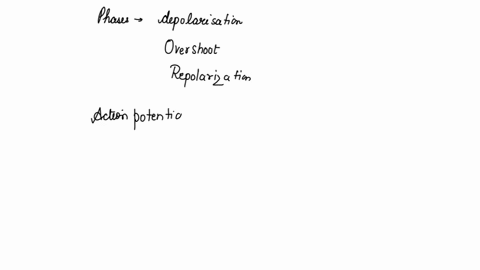 Phases → depolarisation
Overshoot
Repolarization
Action potentia